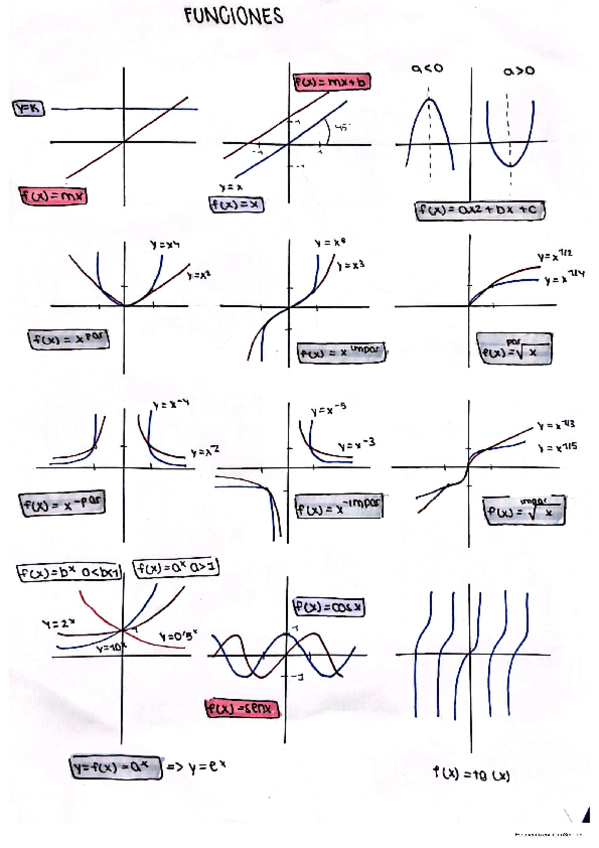 FUNCIONES
y=k
f(x)=mx
f(x)=mx+b
45°
1
-1
1
-1
y=x
f(x)=x
a<0
a>0
f(x)=ax2+bx+c
y=x4
y=x2
f(x)=x^par
y=x3
f(x)=x^impar
y=x^1/2
y=x^1/4
f(x)=par√x
y=x^-4
f(x)=x^-par
y=x^-5
y=x^-3
f(x)=x^-impar
y=x^1/3
y=x^1/5
f(x)=impar√x
f(x)=b^x 0<b<1
f(x)=a^x a>1
y=2^x
y=10^x
y=0'5^x
1
y=f(x)=a^x => y=e^x
f(x)=cosx
1
-1
f(x)=senx
f(x)=tg(x)